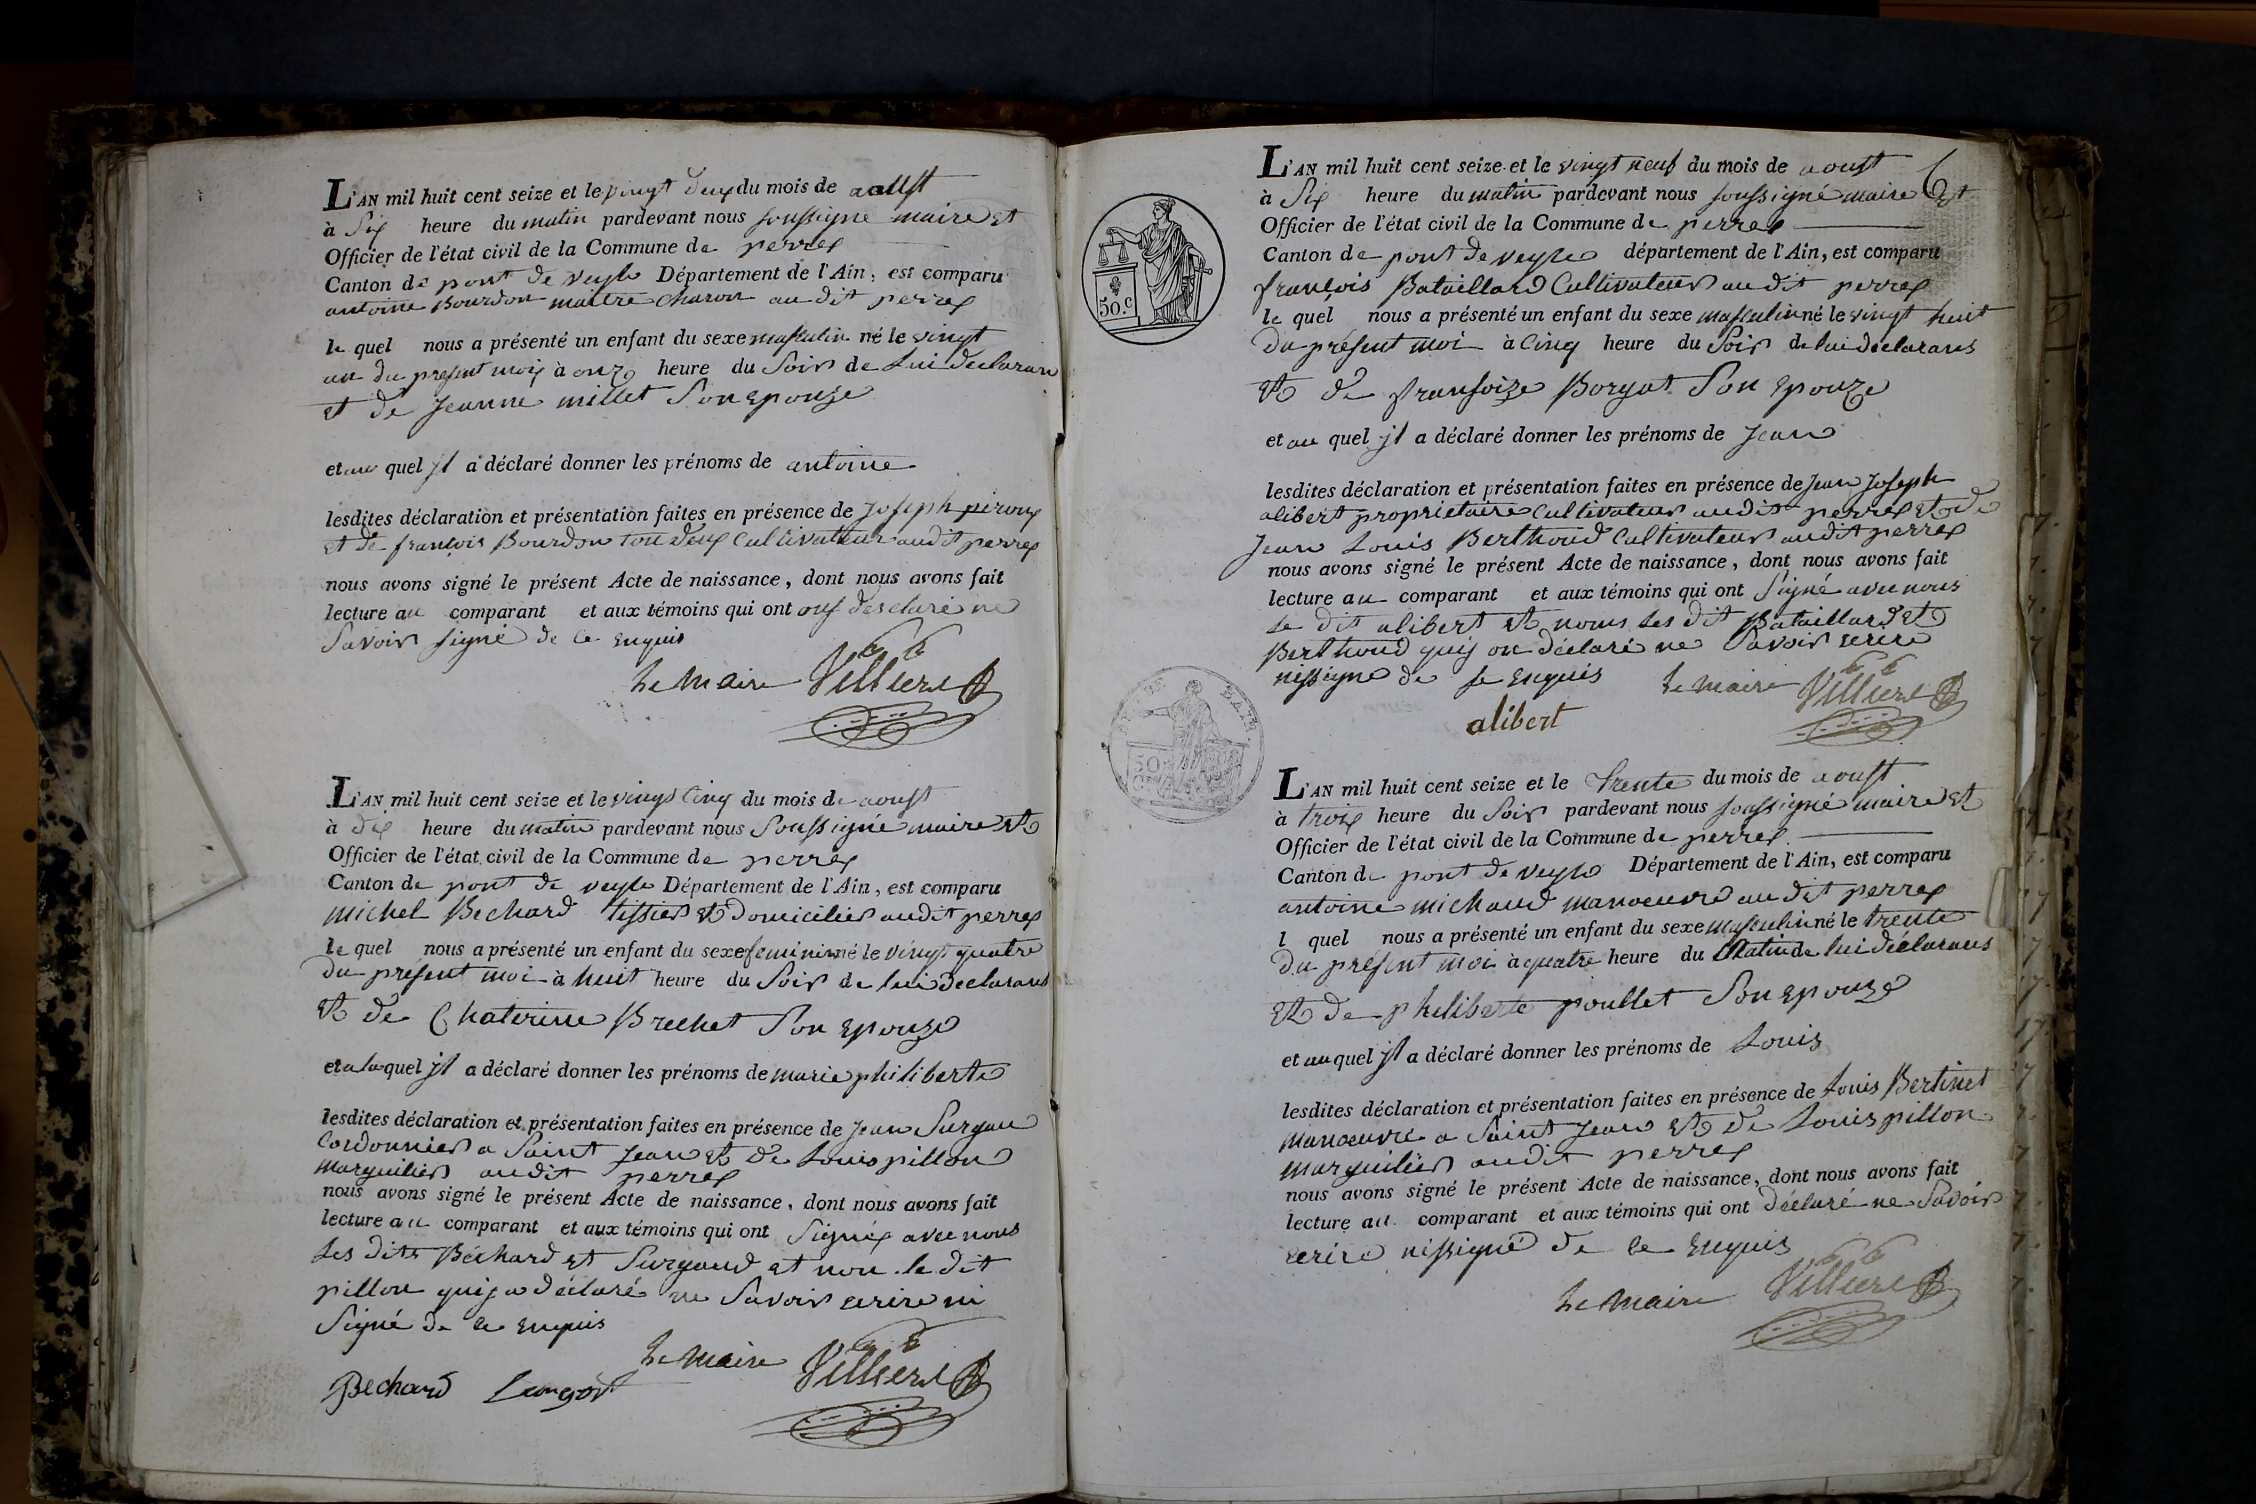 L'AN mil huit cent seize et le vingt deux du mois de aoust
à Six heure du matin pardevant nous soussigné maire et
Officier de l'état civil de la Commune de perrex
Canton de pont de veyle Département de l'Ain, est comparu
antoine Bourdon maitre charon au dit perrex
le quel nous a présenté un enfant du sexe masculin né le vingt
un du present mois à onze heure du Soir de Lui declaran
et de jeanne millet Son epouze
et au quel jl a déclaré donner les prénoms de antoine
lesdites déclaration et présentation faites en présence de Joseph piroux
et de françois Bourdon tou deux Cultivateur audit perrex
nous avons signé le présent Acte de naissance, dont nous avons fait
lecture au comparant et aux témoins qui ont desclaré ne
Savoir signé de ce enquis
Le Maire Villiere
L'AN mil huit cent seize et le vingt Cinq du mois de aoust
à dix heure du matin pardevant nous Soussignée maire et
Officier de l'état civil de la Commune de perrex
Canton de pont de veyle Département de l'Ain, est comparu
michel Bechard tissier et Domicilier audit perrex
le quel nous a présenté un enfant du sexe feminin né le vingt quatre
du présent moi à huit heure du Soir de lui Declarans
et de Chaterine Brechet Son epouze
et a la quel jl a déclaré donner les prénoms de marie philiberte
lesdites déclaration et présentation faites en présence de Jean Surgau
Cordonnier a Saint Jean et de Louis pillon
marguilier audit perrex
nous avons signé le présent Acte de naissance, dont nous avons fait
lecture au comparant et aux témoins qui ont Signés avec nous
Les Dits Bechard et Surgaud et non le dit
pillon qui a déclaré ne Savoir ecrire ni
Signé de ce enquis
Le Maire Villiere
Bechard
6
L'AN mil huit cent seize et le vingt neuf du mois de aoust
à Six heure du matin pardevant nous soussigné maire Et
Officier de l'état civil de la Commune de perrex
Canton de pont de veyle département de l'Ain, est comparu
françois Bataillard Cultivateur audit perrex
le quel nous a présenté un enfant du sexe masculin né le vingt huit
Du présent moi à Cinq heure du Soir de lui déclarans
et de fransoize Borgat Son epouze
et au quel jl a déclaré donner les prénoms de Jean
lesdites déclaration et présentation faites en présence de Jean Joseph
alibert proprietaire Cultivateur audit perrex et de
Jean Louis Berthoud Cultivateur audit perrex
nous avons signé le présent Acte de naissance, dont nous avons fait
lecture au comparant et aux témoins qui ont Signé avec nous
Le dit alibert et nous Les dit Bataillard et
Berthoud quj on déclaré ne Savoir ecrire
nissigné de se enquis Le maire Villiere
alibert
50.c
L'AN mil huit cent seize et le trente du mois de aoust
à trois heure du Soir pardevant nous soussigné maire et
Officier de l'état civil de la Commune de perrex
Canton de pont de veyle Département de l'Ain, est comparu
antoine michaud manoeuvre au dit perrex
l quel nous a présenté un enfant du sexe masculin né le trente
Du présent moi à quatre heure du Matin de lui déclarans
et de philiberte poullet Son epouze
et au quel jl a déclaré donner les prénoms de Louis
lesdites déclaration et présentation faites en présence de Louis Bertinet
manoeuvre a Saint Jean et de Louis pillon
marguilier audit perrex
nous avons signé le présent Acte de naissance, dont nous avons fait
lecture au comparant et aux témoins qui ont Déclaré ne Savoir
ecrire nissigné de ce enquis
Le maire Villiere